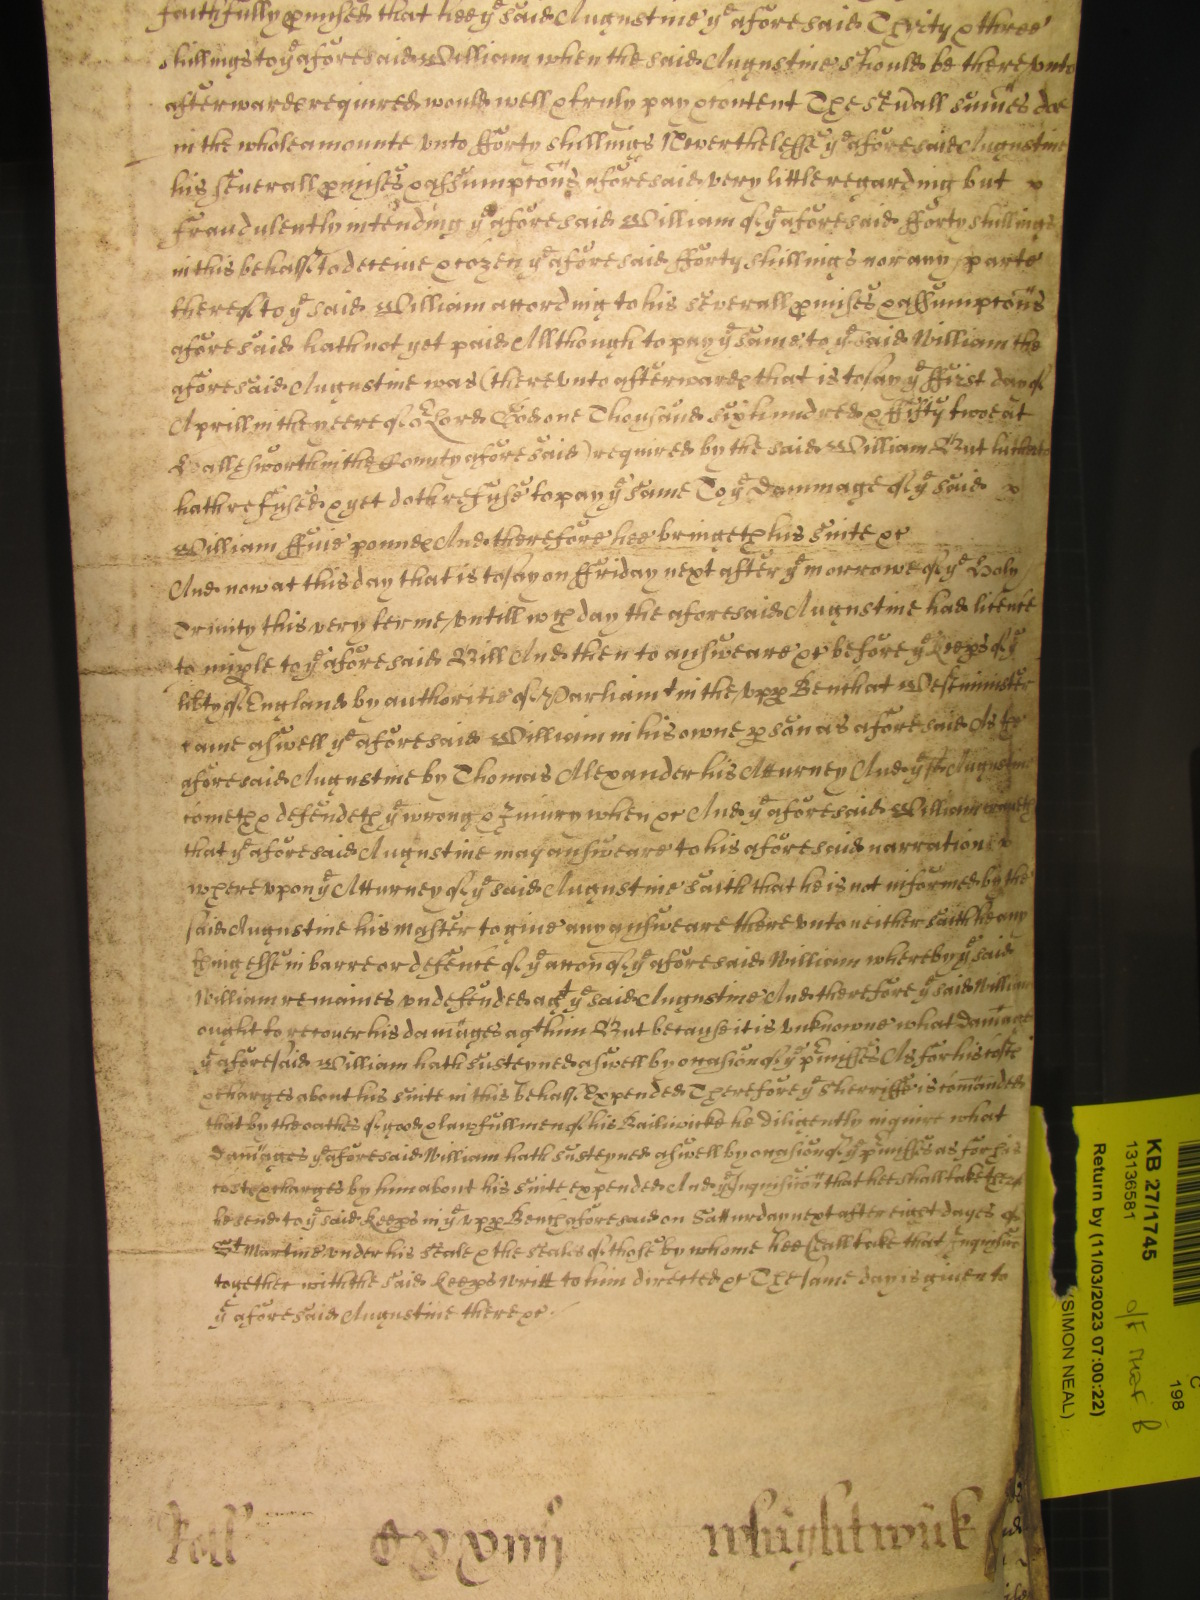 faithfully pmised that hee ye said Augustine ye aforesaid Thirty & three
shillings to ye aforesaid William when the said Augustine should be there vnto
afterwards required would well & truly pay & content The seuall sumes doe
in the whole amounte vnto fforty shillings Neverthelesse ye aforesaid Augustine
his severall pmises & assumptons aforesaid very little regarding but &
fraudulently intending ye aforesaid William of ye aforesaid fforty shillings
in this behalf to deceive & cozen ye aforesaid fforty shillings nor any parte
thereof to ye said William according to his severall pmises & assumptons
aforesaid hath not yet paid Allthough to pay ye same to ye said William the
aforesaid Augustine was (there vnto afterwards that is to say ye ffirst day of
Aprill in the yeere of or Lord God one Thousand six hundred & ffifty twoe at
Hallesworth in the County aforesaid) required by the said William But hitherto
hath refused & yet doth refuse to pay ye same To ye Dammage of ye said &
William ffive pounds And therefore hee bringeth his suite &c
And now at this day that is to say on ffriday next after ye morrowe of ye Holy
Trinity this very terme vntill wch day the aforesaid Augustine had licence
to imple to ye aforesaid Bill And then to answeare &c before ye Keeps of ye
libty of England by authoritie of Parliamt in the vpp Bench at Westminster
came aswell ye aforesaid William in his owne pson as aforesaid As ye
aforesaid Augustine by Thomas Alexander his Atturney And ye sd Augustine
cometh & defendeth ye wrong & Iniury when &c And ye aforesaid William craveth
that ye aforesaid Augustine may answeare to his aforesaid narration &
wherevpon ye Atturney of ye said Augustine saith that he is not informed by the
said Augustine his master to giue any answeare there vnto neither saith he any
thing else in barre or defence of ye accon of ye aforesaid William whereby ye said
William remaines vndefended agt ye said Augustine And therefore ye said William
ought to recouer his damages agt him But because it is vnknowne what damages
ye aforesaid William hath susteyned aswell by occasion of ye pmisses As for his costs
& charges about his suite in this behalf Expended Therefore ye Sherriffe is comanded
that by the oathes of good & lawfull men of his Bailiwicke he diligently inquire what
Damages ye aforesaid William hath susteyned aswell by occasion of ye pmisses as for his
costs & charges by him about his suite expended And ye Inquisicon that hee shall take thereof
he send to ye said Keeps in ye vpp Bench aforesaid on Satturday next after eight dayes of
St Martine vnder his seale & the seales of those by whome hee shall take that Inquisicon
together with the said Keeps writt to him directed &c The same day is given to
ye aforesaid Augustine there &c
Roll CXXViiij Whightwick
KB 27/1745
13136581
Return by (11/03/2023 07:00:22)
(SIMON NEAL)
C
198